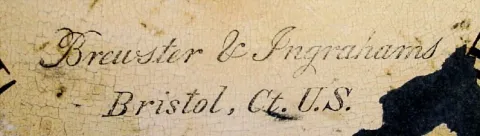 Brewster & Ingrahams
Bristol, Ct. U.S.